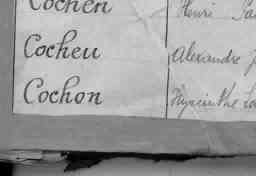 Cochen Henri
Cocheu Alexandre
Cochon Hyacinthe